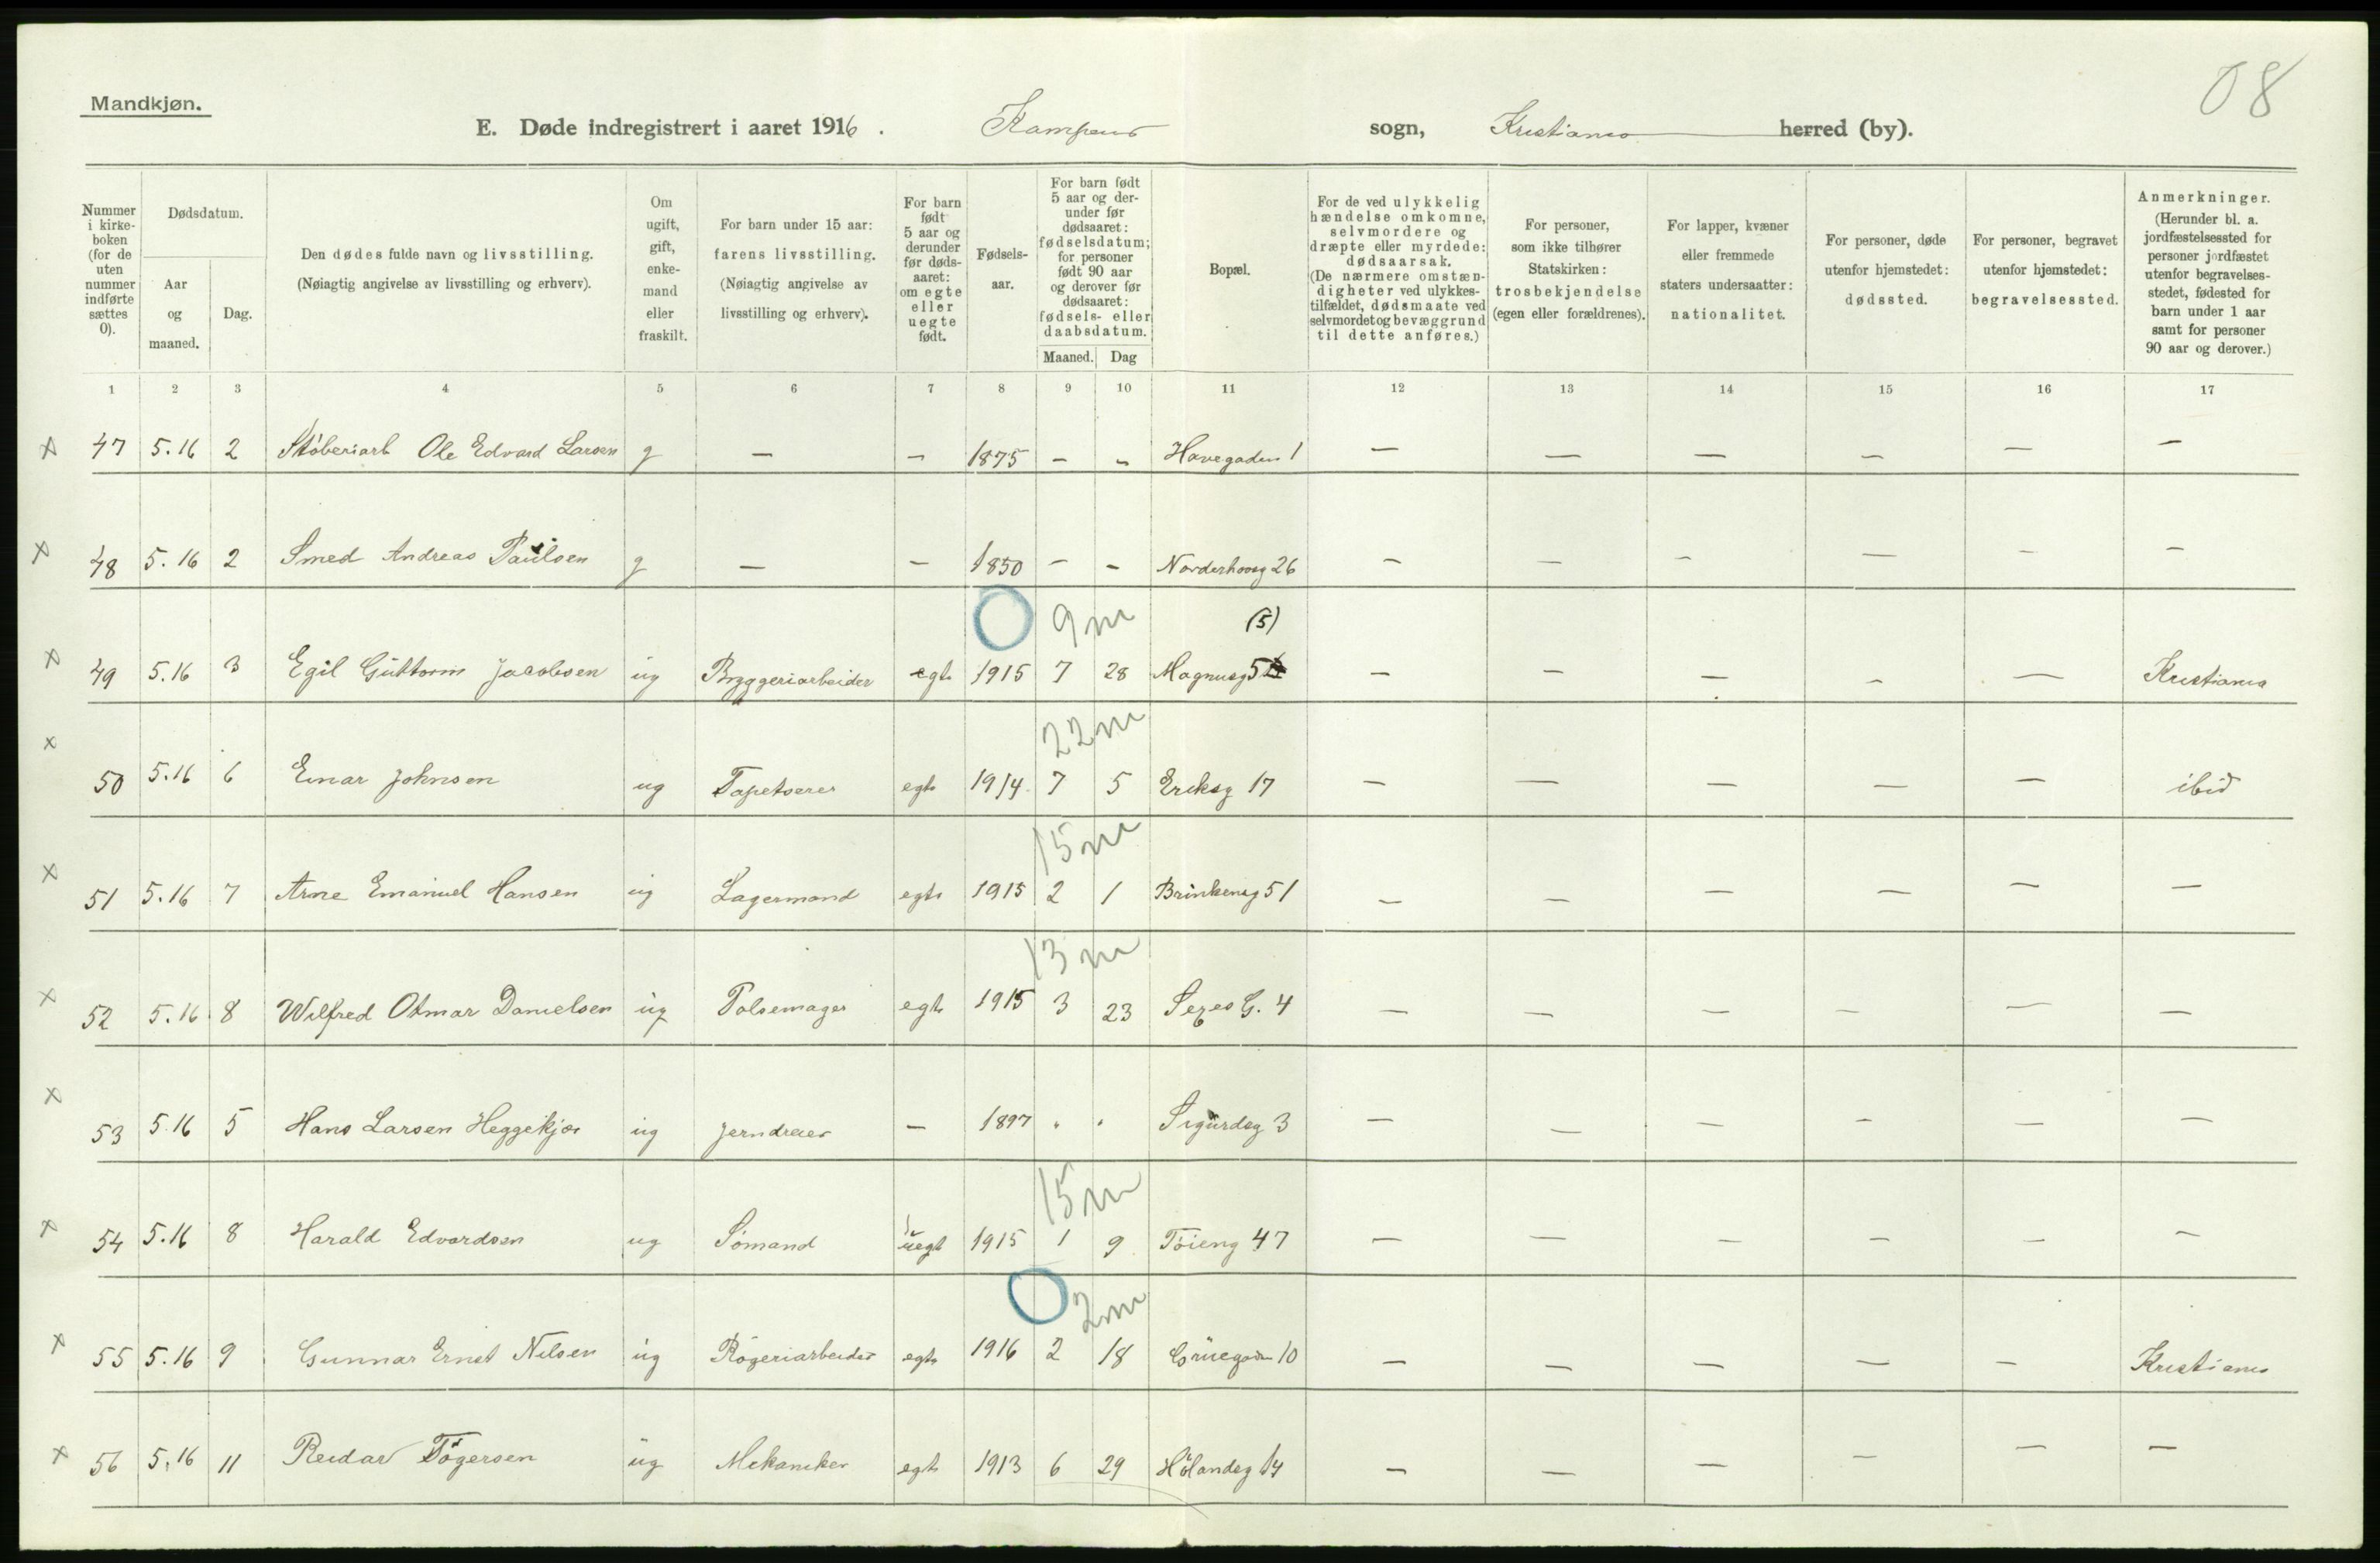 08
Mandkjøn.
E. Døde indregistrert i aaret 1916. Kampens sogn, Kristiania herred (by).
Nummer i kirkeboken (for de uten nummer indførte sættes 0).
Dødsdatum.
Aar og maaned.
Dag.
Den dødes fulde navn og livsstilling. (Nøiagtig angivelse av livsstilling og erhverv).
Om ugift, gift, enkemand eller fraskilt.
For barn under 15 aar: farens livsstilling. (Nøiagtig angivelse av livsstilling og erhverv).
For barn født 5 aar og derunder før dødsaaret: om egte eller uegte født.
Fødselsaar.
For barn født 5 aar og derunder før dødsaaret: fødselsdatum; for personer født 90 aar og derover før dødsaaret: fødsels- eller daabsdatum.
Maaned. Dag
Bopæl.
For de ved ulykkelig hændelse omkomne, selvmordere og dræpte eller myrdede: dødsaarsak. (De nærmere omstændigheter ved ulykkestilfældet, dødsmaate ved selvmordet og bevæggrund til dette anføres.)
For personer, som ikke tilhører Statskirken: trosbekjendelse (egen eller forældrenes).
For lapper, kvæner eller fremmede staters undersaatter: nationalitet.
For personer, døde utenfor hjemstedet: dødssted.
For personer, begravet utenfor hjemstedet: begravelsessted.
Anmerkninger. (Herunder bl. a. jordfæstelsessted for personer jordfæstet utenfor begravelsesstedet, fødested for barn under 1 aar samt for personer 90 aar og derover.)
1 2 3 4 5 6 7 8 9 10 11 12 13 14 15 16 17
x 47 5.16 2 Støberiarb Ole Edvard Larsen g — — 1875 — — Havegaden 1 — — — — — —
x 48 5.16 2 Smed Andreas Paulsen g — — 1850 — — Norderhovsg 26 — — — — — —
9 m (5)
x 49 5.16 3 Egil Guttorm Jacobsen ug Bryggeriarbeider egte 1915 7 28 Magnusg 5 — — — — — Kristiania
22 m
x 50 5.16 6 Einar Johnsen ug Tapetserer egte 1914 7 5 Eriksg 17 — — — — — ibid
15 m
x 51 5.16 7 Arne Emanuel Hansen ug Lagermand egte 1915 2 1 Brinkensg 51 — — — — — —
13 m
x 52 5.16 8 Wilfred Otmar Danielsen ug Pølsemager egte 1915 3 23 Seges G. 4 — — — — — —
x 53 5.16 5 Hans Larsen Heggekjær ug Jerndreier — 1897 " " Sigurdsg 3 — — — — — —
15 m
x 54 5.16 8 Harald Edvardsen ug Sømand uegt 1915 1 9 Tøieng 47 — — — — — —
2 m
x 55 5.16 9 Gunnar Ernst Nilsen ug Røgeriarbeider egte 1916 2 18 Grüegaden 10 — — — — — Kristiania
x 56 5.16 11 Reidar Tøgersen ug Mekaniker egte 1913 6 29 Hølandsg 14 — — — — — —